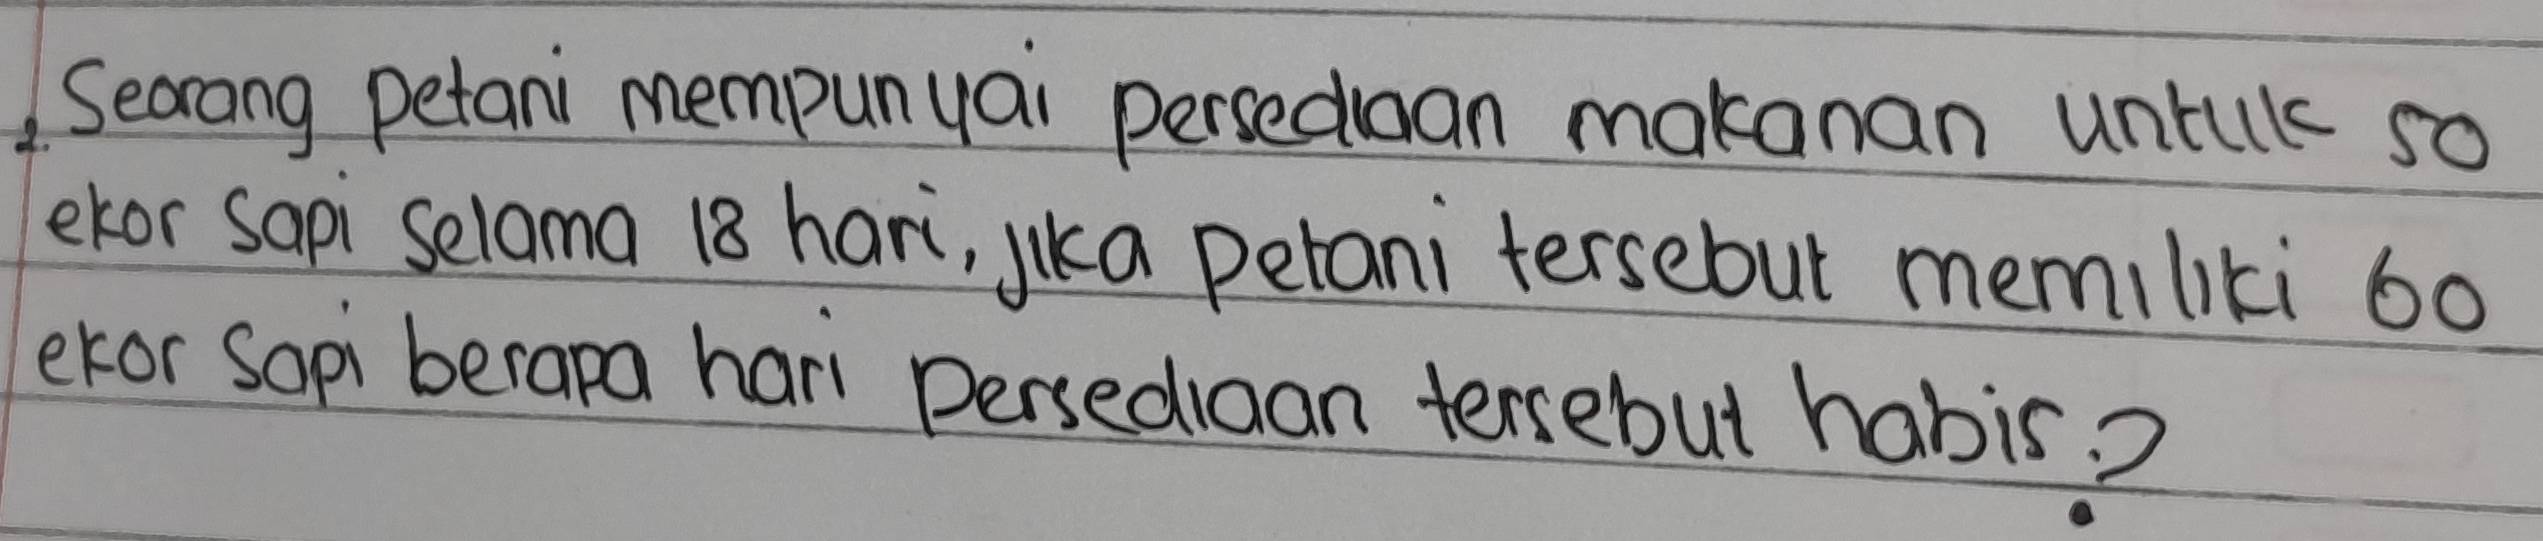 2. Seorang petani mempunyai persediaan makanan untuk 50
ekor sapi selama 18 hari, jika petani tersebut memiliki 60
ekor sapi berapa hari persediaan tersebut habis?